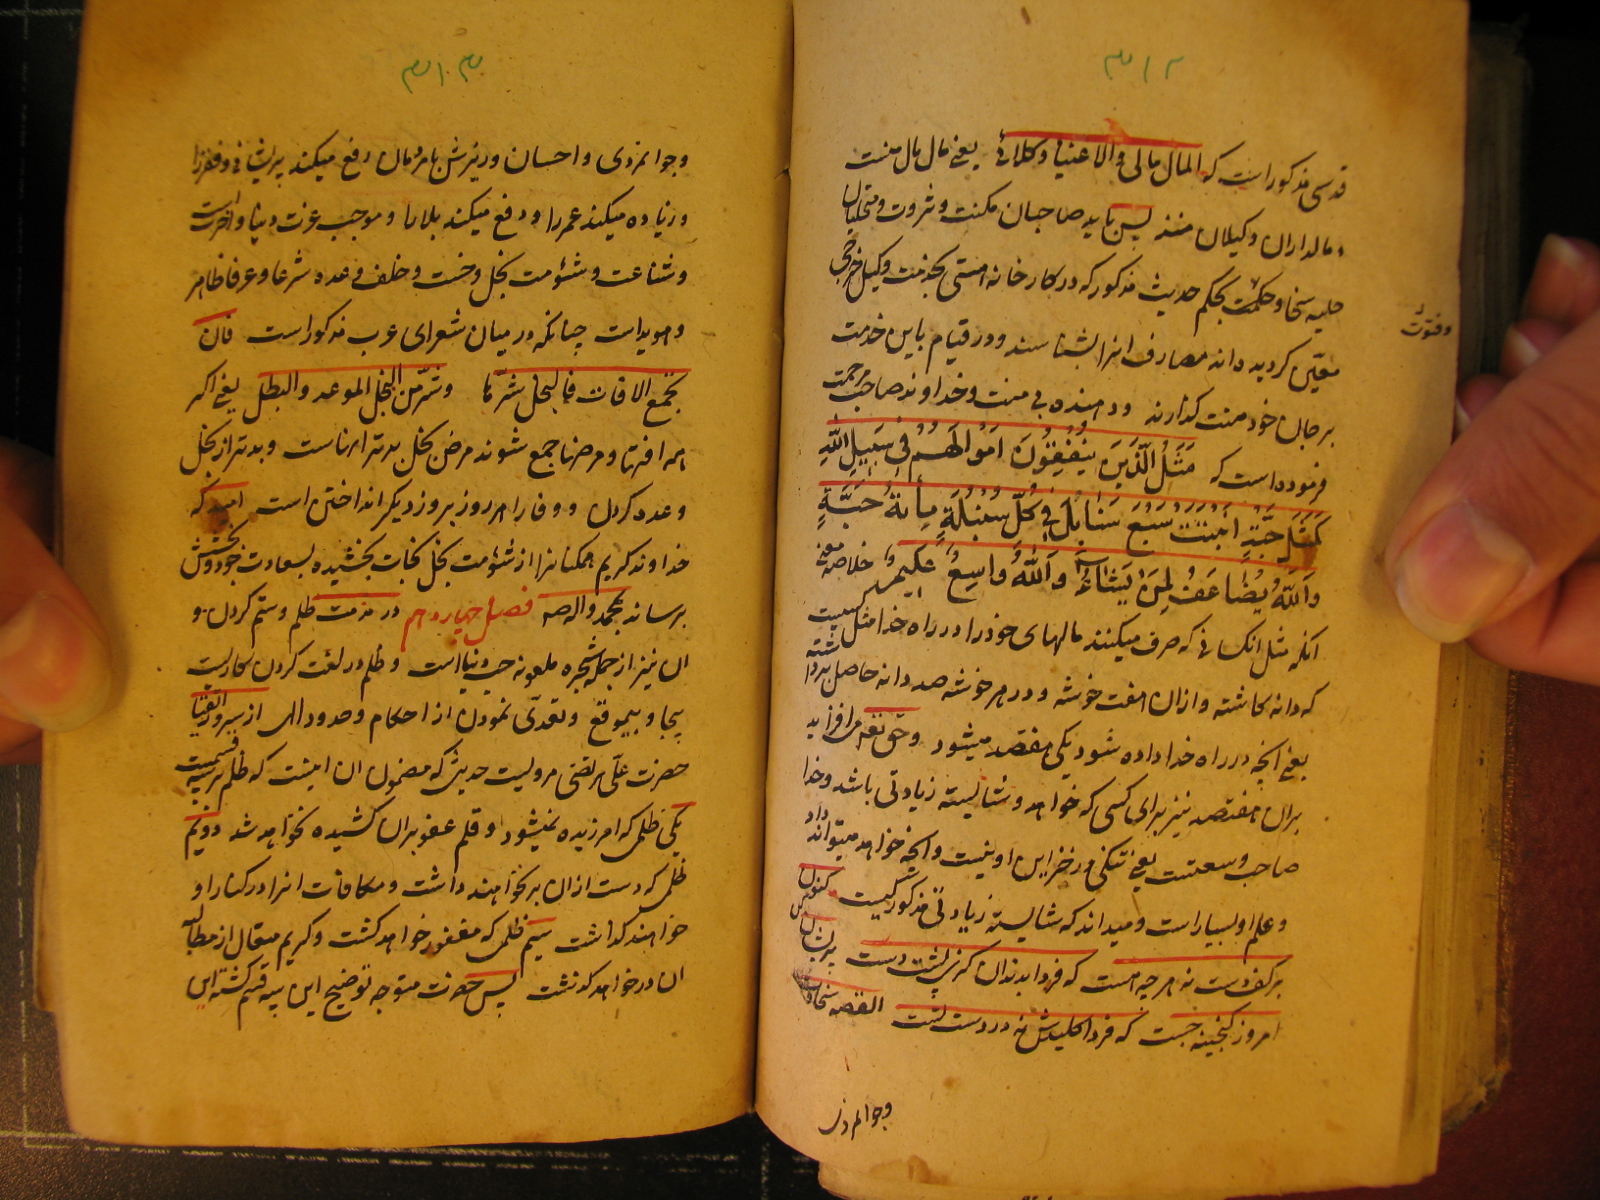 قدسی مذکور است که المال مالی والاغنیا وکلائی یعنی مال مال منست
و مالداران وکیلان منند پس باید صاحبان مکنت و ثروت و متحلیان
حلیه سخا و حکمت بحکم حدیث مذکور که در کارخانه هستی بخدمت وکیل خرجی
وفتوت
معین گردیده‌اند مصارف انرا بشناسند و در قیام باین خدمت
بر جان خود منت گذارند و دهنده بی منت و خداوند صاحب مرحمت
فرموده است که مَثَلُ الَّذینَ یُنْفِقُونَ اَمْوالَهُمْ فی سَبیلِ اللهِ
کَمَثَلِ حَبَّةٍ اَنْبَتَتْ سَبْعَ سَنابِلَ فی کُلِّ سُنْبُلَةٍ مِأَةُ حَبَّةٍ
وَاللهُ یُضاعِفُ لِمَنْ یَشاءُ وَاللهُ واسِعٌ عَلیمٌ خلاصه معنی
آنکه مثل انکسانی که صرف میکنند مالهای خود را در راه خدا مثل کسیست
که دانه کاشته و ازان هفت خوشه و در هر خوشه صد دانه حاصل برداشته
یعنی انچه در راه خدا داده شود یکی هفتصد میشود و حق تعه می‌افزاید
بران هفتصد نیز برای کسی که خواهد و شایسته زیادتی باشد و خدا
صاحب وسعتست یعنی تنکی در خزاین او نیست و انچه خواهد میتواند داد
و علم او بسیار است و میداند که شایسته زیادتی مذکور کیست کنون
بر کف دست نه هر چه هست که فردا بدندان کزی پشت دست پریشان کن
امروز کنجینه چست که فردا کلیدش نه در دست تست القصه سخاوت
وجوانمردی
وجوانمردی و احسان و ریزش با مردمان رفع میکند پریشانی و فقر را
و زیاده میکند عمر را و دفع میکند بلا را و موجب عزت دنیا و آخرت است
و شناعت و شئومت بخل و خست و خلف وعده شرعا و عرفا ظاهر
و هویداست چنانکه در میان شعرای عرب مذکور است فان
تجمع الافات فالبخل شرّها وشرّ من البخل الموعد والبطل یعنی اکر
همه افتها و مرضها جمع شوند مرض بخل بدتر انهاست و بدتر از بخل
وعده کردن و وفا را امروز بروز دیکر انداختن است امید که
خداوند کریم همکنانرا از شئومت بخل نجات بخشیده بسعادت جود و بخشش
برساند بمحمد واله صه فصل چهاردهم در مذمت ظلم و ستم کردن و
ان نیز از جمله شجره ملعونه حب دنیا است و ظلم در لغت کردن کاریست
بیجا و بیموقع و تعدّی نمودن از احکام و حدود الهی از سرور اتقیا
حضرت علی مرتضی مرویست حدیثی که مضمون ان اینست که ظلم بر سه قسمست
یکی ظلمی که امرزیده نمیشود و قلم عفو بران کشیده نخواهد شد دویم
ظلمی که دست ازان برنخواهند داشت و مکافات انرا در کنار او
خواهند کذاشت سیم ظلمی که مغفور خواهد کشت و کریم متعال از مطالبه
ان در خواهد کذشت پس حضرت متوجه توضیح این سه قسم کشته این